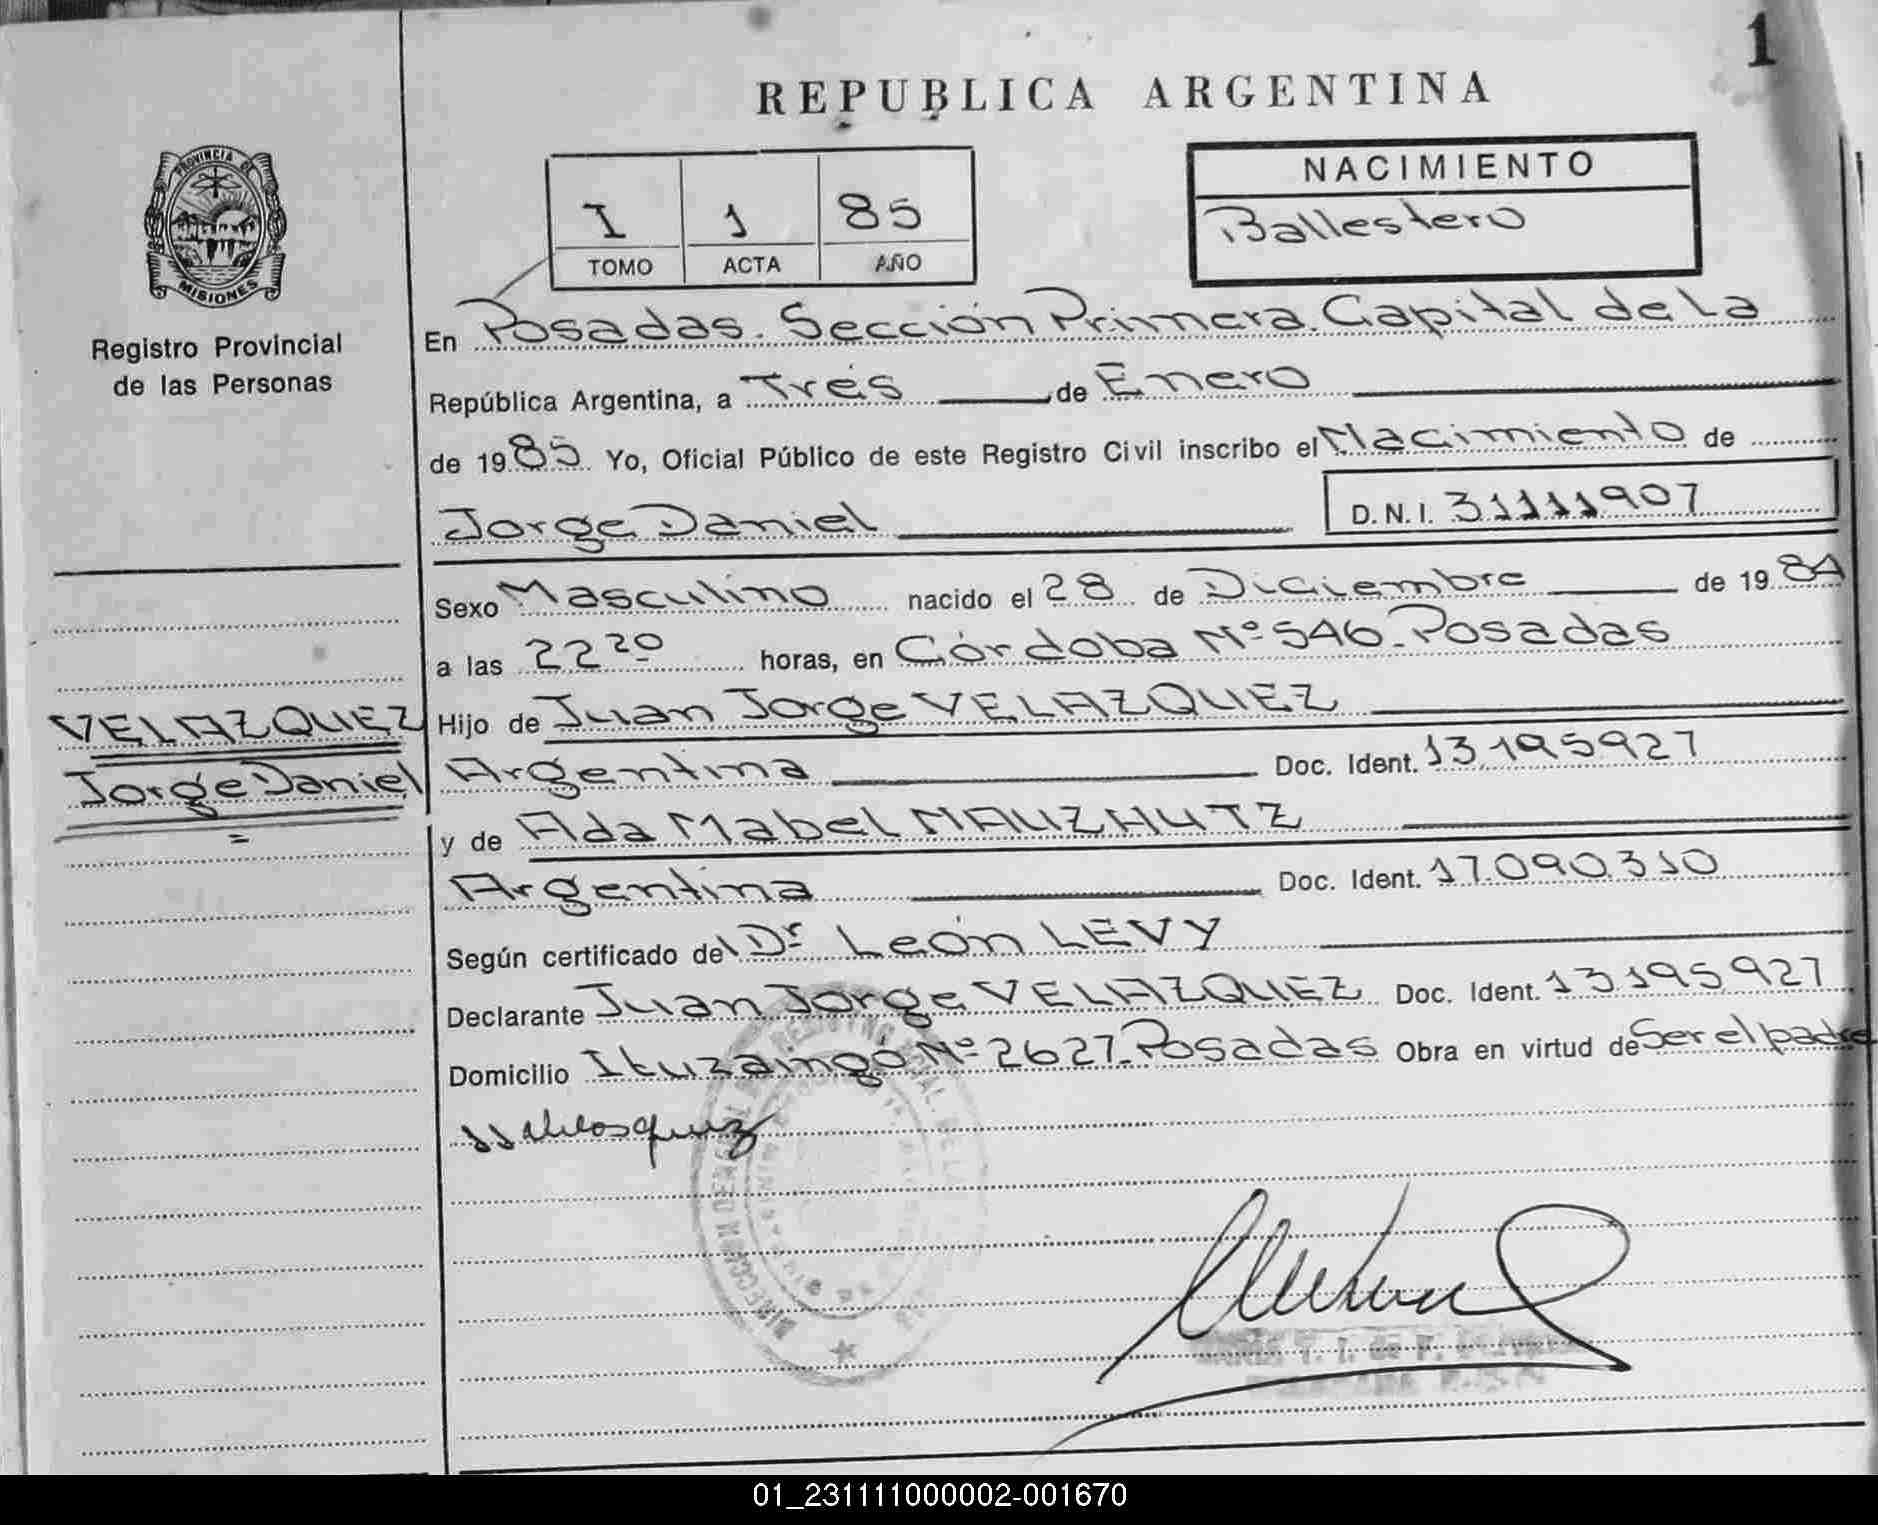 1
REPUBLICA ARGENTINA
PROVINCIA DE
MISIONES
Registro Provincial
de las Personas
I 1 85
TOMO ACTA AÑO
NACIMIENTO
Ballestero
En Posadas. Sección Primera. Capital de la
República Argentina, a Tres de Enero
de 1985 Yo, Oficial Público de este Registro Civil inscribo el Nacimiento de
Jorge Daniel D.N.I. 31111907
Sexo Masculino nacido el 28 de Diciembre de 1984
a las 22 20 horas, en Córdoba Nº 546. Posadas
VELAZQUEZ
Jorge Daniel
Hijo de Juan Jorge VELAZQUEZ
Argentina Doc. Ident. 13.195927
y de Ada Mabel MAUZHUTZ
Argentina Doc. Ident. 17.090.310
Según certificado del Dr León LEVY
Declarante Juan Jorge VELAZQUEZ Doc. Ident. 13195927
Domicilio Ituzaingó Nº 2627. Posadas Obra en virtud de Ser el padre
01_231111000002-001670